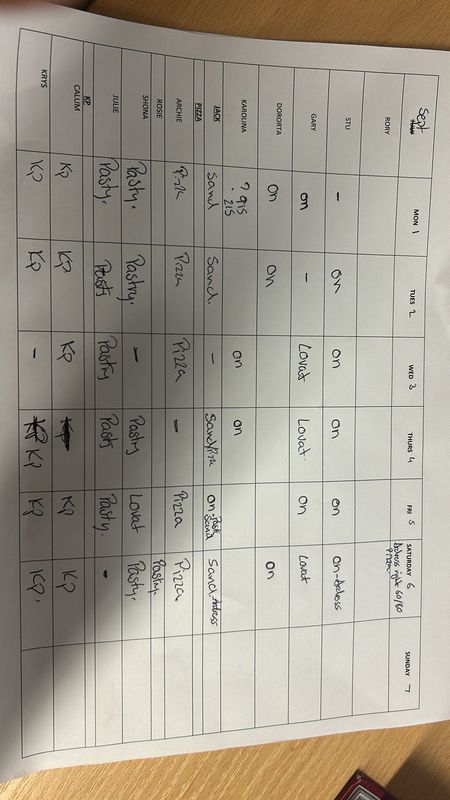 Sept MON 1 TUES 2 WED 3 THURS 4 FRI 5 SATURDAY 6 SUNDAY 7
60/60
Pizza
RORY
STU - on on on on on-
GARY on - Lovat Lovat. on Lovat
DORORTA on on on
KAROLINA ? 9is on on
- 215
JACK Sand Sand. - Sand/Pizza on Sand
PIZZA
ARCHIE Pizza Pizza Pizza - Pizza Pizza
ROSIE Pastry.
SHONA Pasty. Pastry. - Pastry Lovat Pasty.
JULIE Pasty. Pasty Pastry Pasty Pasty. -
KP
CALUM KP KP KP KP KP
KRYS KP KP - KP KP KP.